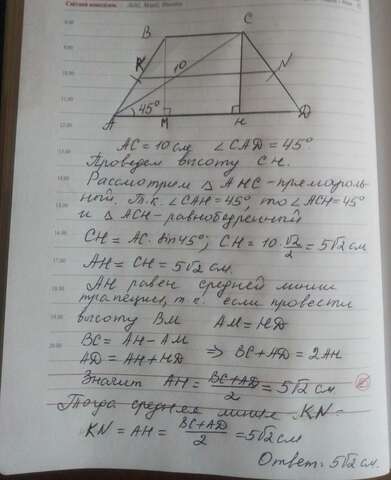 8.00
B
C
9.00
K
N
10.00
10
11.00
45°
A
M
H
D
12.00
AC = 10 см ∠CAD = 45°
13.00
Проведем высоту CH.
Рассмотрим △ AHC - прямоуголь-
ный. Т.к. ∠CAH = 45°, то ∠ACH = 45°
и △ ACH - равнобедренный
16.00
CH = AC · sin45°; CH = 10 · √2/2 = 5√2 см
17.00
AH = CH = 5√2 см.
18.00
AH равен средней линии
трапеции, т.к. если провести
19.00
высоту BM AM = HD
20.00
BC = AH - AM
AD = AH + HD ⇒ BC + AD = 2AH
Значит AH = (BC + AD)/2 = 5√2 см.
Тогда средняя линия KN =
KN = AH = (BC + AD)/2 = 5√2 см
Ответ: 5√2 см.